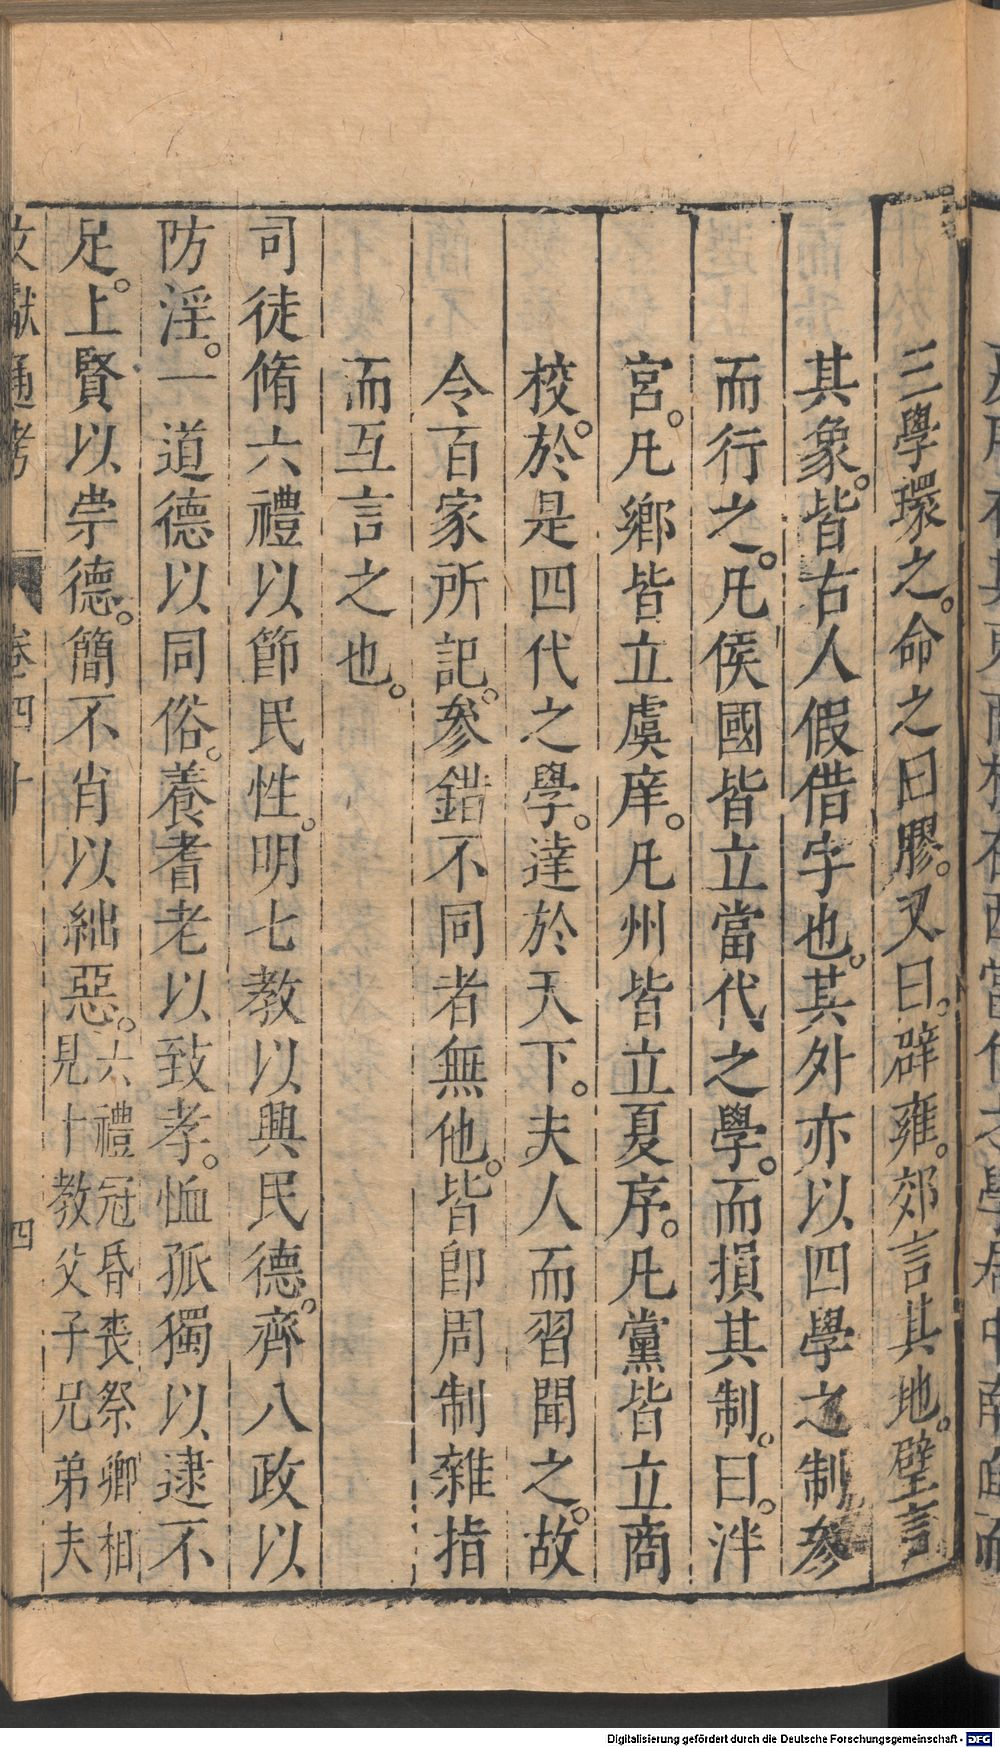 三學環之。命之曰膠。又曰。辟雍。郊言其地。璧言
其象。皆古人假借字也。其外亦以四學之制參
而行之。凡侯國皆立當代之學。而損其制。曰。泮
宮。凡鄉皆立虞庠。凡州皆立夏序。凡黨皆立商
校。於是四代之學。達於天下。夫人而習聞之。故
令百家所記。參錯不同者無他。皆卽周制雜指
而互言之也。
司徒脩六禮以節民性。明七教以興民德。齊八政以
防淫。一道德以同俗。養耆老以致孝。恤孤獨以逮不
足。上賢以崇德。簡不肖以絀惡。六禮冠昏喪祭鄉相
見十教父子兄弟夫
文獻通考 卷四十 四
Digitalisierung gefördert durch die Deutsche Forschungsgemeinschaft - DFG